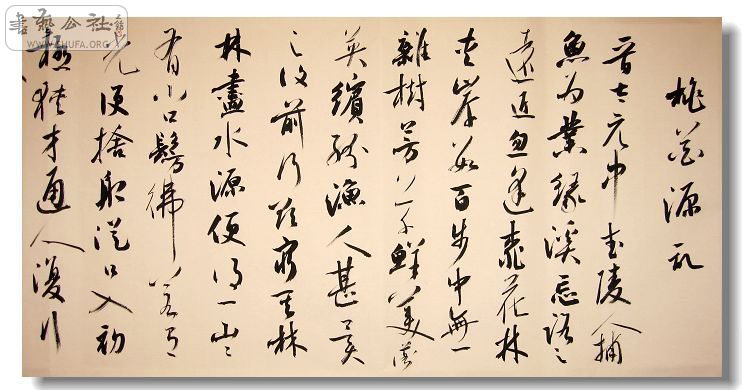 桃花源記
晉太元中武陵人捕
魚為業緣溪忘路之
遠近忽逢桃花林
夾岸數百步中無一
雜樹芳草鮮美落
英繽紛漁人甚異
之復前行欲窮其林
林盡水源便得一山〻
有小口髣彿若有
光便捨船從口入初
極狹才通人復行
書藝公社